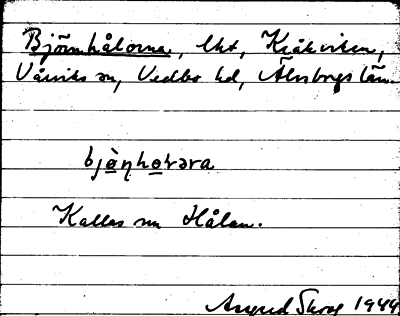 Björnhålorna, lht, Kråkviken,
Vårviks sn, Vedbo hd, Älvsborgs län.
bjö̀ṇhoⱹəra
Kallas nu Hålan.
Astrid 1944